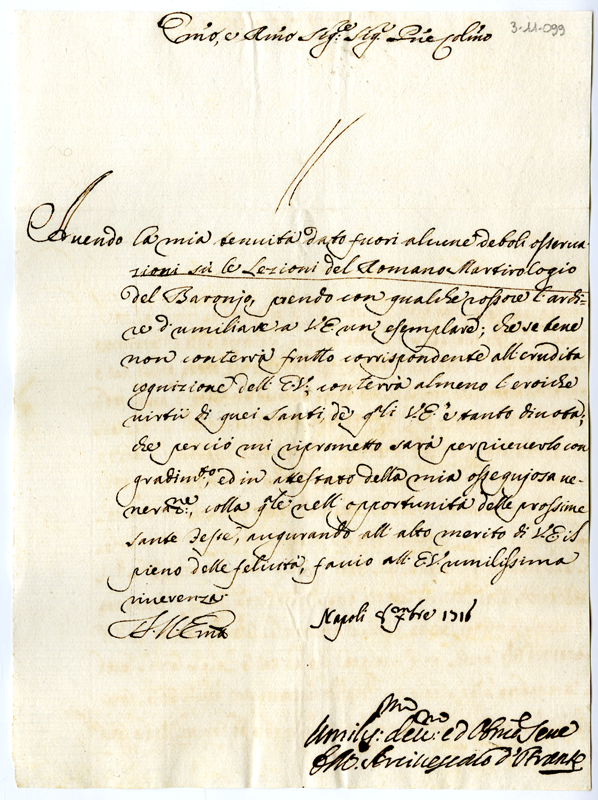 Emo, e Rmo Sig:re Sig.r Pne Colmo
3-11-099
Avendo la mia tenuità dato fuori alcune deboli osserva=
zioni sù le Lezioni del Romano Martirologio
del Baronjo, prendo con qualche rossore l'ardi=
re d'umiliare a V.E un esemplare; che se bene
non conterrà frutto corrispondente all'erudita
cognizione dell'E.V, conterrà almeno l'eroiche
virtù di quei Santi, de q'li V.E è tanto divota;
che perciò mi riprometto sarà per riceverlo con
gradim.to, ed in attestato della mia ossequjosa ve-
neraz:ne, colla q'le nell'opportunità delle prossime
sante feste, augurando all'alto merito di V.E il
pieno delle felicità, faccio all'E.V umilissima
riverenza.
Napoli Xmbre 1716
Umilis: devmo ed Obmo Serve
Arcivescovo d'Otranto